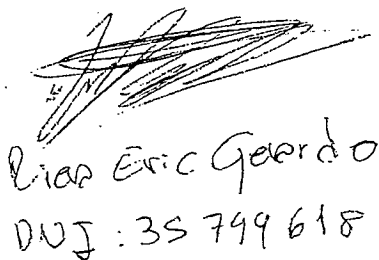 Eric Gerardo
DNI: 35 799 618